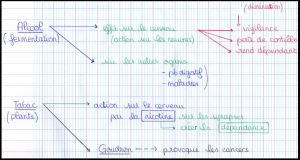 (diminution)
Alcool
(fermentation)
effet sur le cerveau
(action sur les neurones)
vigilance
perte de contrôle
rend dépendant
sur les autres organes
- maladies
Tabac
(plantes)
action sur le cerveau
par la nicotine sur les synapses
créer la dépendance
Goudron → provoque les cancers